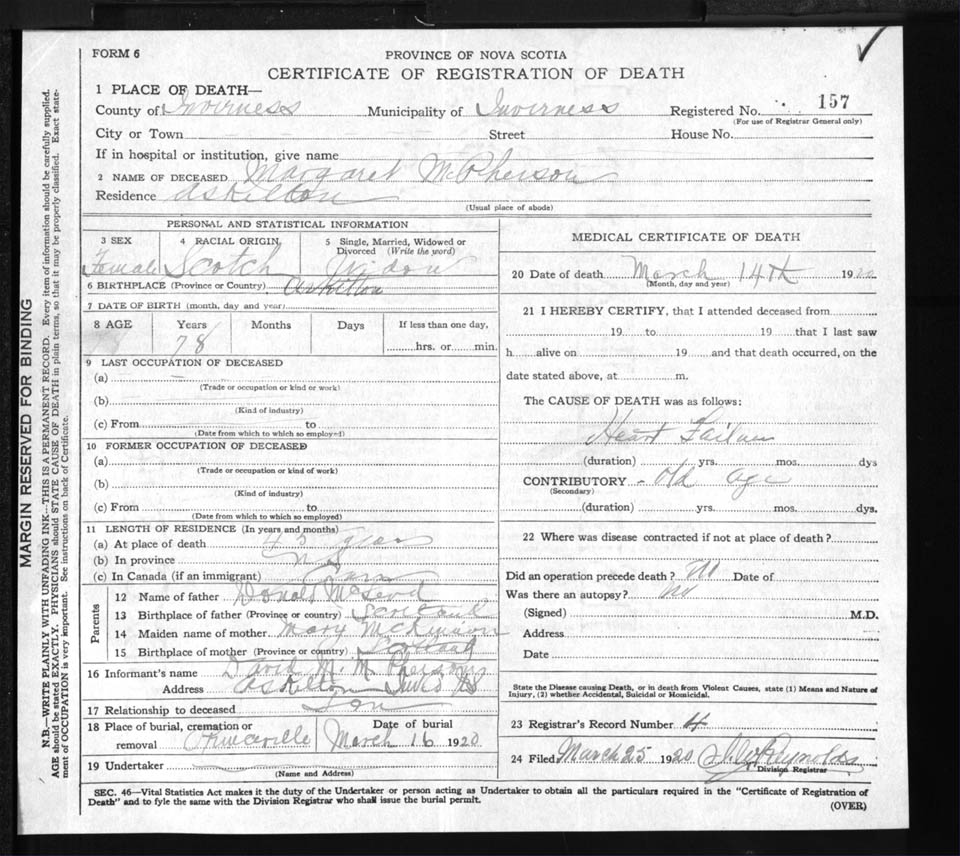 FORM 6
PROVINCE OF NOVA SCOTIA
CERTIFICATE OF REGISTRATION OF DEATH
1 PLACE OF DEATH—
County of Inverness Municipality of Inverness Registered No. 157
(For use of Registrar General only)
City or Town Street House No.
If in hospital or institution, give name
2 NAME OF DECEASED Margaret McPherson
Residence Askilton
(Usual place of abode)
PERSONAL AND STATISTICAL INFORMATION
3 SEX 4 RACIAL ORIGIN 5 Single, Married, Widowed or
Divorced (Write the word)
Female Scotch Widow
6 BIRTHPLACE (Province or Country) Askilton
7 DATE OF BIRTH (month, day and year)
8 AGE Years Months Days If less than one day,
78 hrs. or min.
9 LAST OCCUPATION OF DECEASED
(a)
(Trade or occupation or kind or work)
(b)
(Kind of industry)
(c) From to
(Date from which to which so employed)
10 FORMER OCCUPATION OF DECEASED
(a)
(Trade or occupation or kind of work)
(b)
(Kind of industry)
(c) From to
(Date from which to which so employed)
11 LENGTH OF RESIDENCE (In years and months)
(a) At place of death 45 years
(b) In province N S
(c) In Canada (if an immigrant)
Parents
12 Name of father Donald McLeod
13 Birthplace of father (Province or country) Scotland
14 Maiden name of mother Mary McKinnon
15 Birthplace of mother (Province or country) Scotland
16 Informant's name David M. McPherson
Address Askilton Inv Co NS
17 Relationship to deceased Son
18 Place of burial, cremation or Date of burial
removal Princeville March 16 1920
19 Undertaker
(Name and Address)
MEDICAL CERTIFICATE OF DEATH
20 Date of death March 14th 1920
(Month, day and year)
21 I HEREBY CERTIFY, that I attended deceased from
19 to 19 that I last saw
h alive on 19 and that death occurred, on the
date stated above, at m.
The CAUSE OF DEATH was as follows:
Heart Failure
(duration) yrs. mos. dys
CONTRIBUTORY - Old age
(Secondary)
(duration) yrs. mos. dys.
22 Where was disease contracted if not at place of death?
Did an operation precede death? No Date of
Was there an autopsy? No
(Signed) M.D.
Address
Date
State the Disease causing Death, or in death from Violent Causes, state (1) Means and Nature of
Injury, (2) whether Accidental, Suicidal or Homicidal.
23 Registrar's Record Number 4
24 Filed March 25 1920 Reynolds
Division Registrar
SEC. 46—Vital Statistics Act makes it the duty of the Undertaker or person acting as Undertaker to obtain all the particulars required in the "Certificate of Registration of
Death" and to fyle the same with the Division Registrar who shall issue the burial permit.
(OVER)
MARGIN RESERVED FOR BINDING
N.B.—WRITE PLAINLY WITH UNFADING INK—THIS IS A PERMANENT RECORD. Every item of information should be carefully supplied.
AGE should be stated EXACTLY. PHYSICIANS should STATE CAUSE OF DEATH in plain terms, so that it may be properly classified. Exact state-
ment of OCCUPATION is very important. See instructions on back of Certificate.